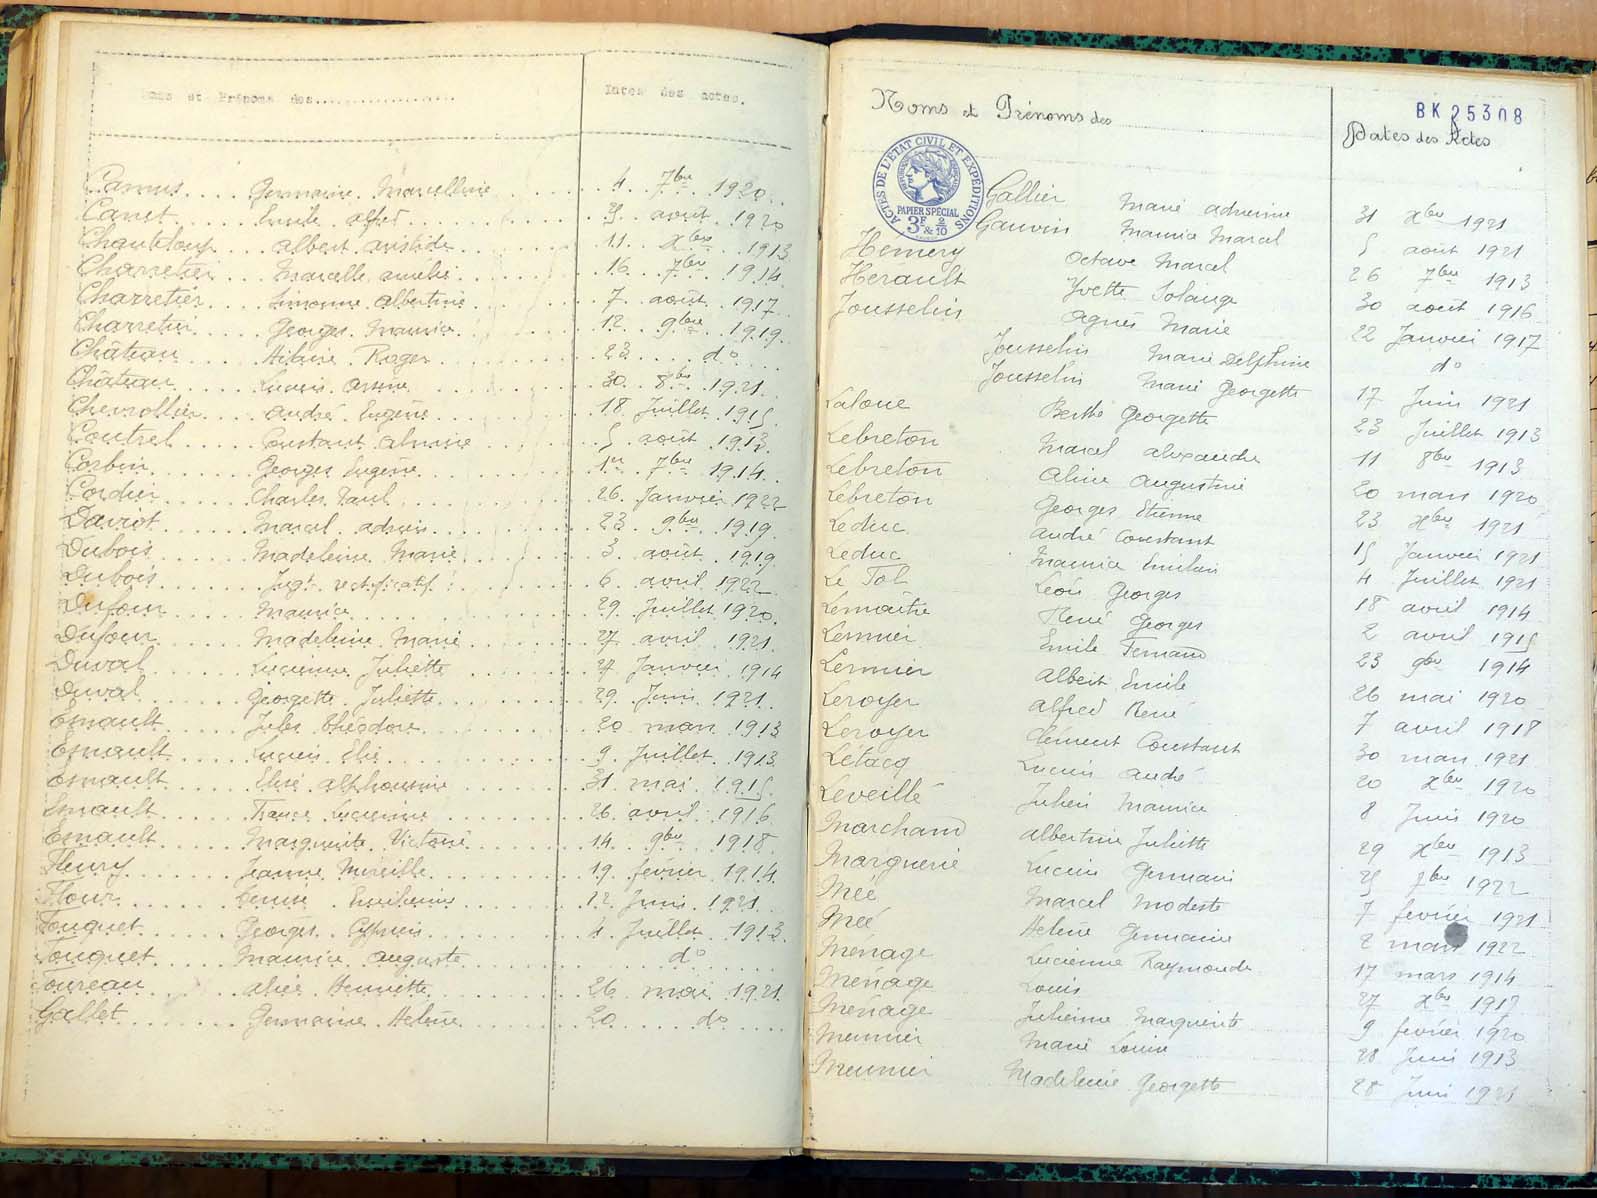 Noms et Prénoms des................. Dates des actes.
Camus.... Germaine Marcelline...... 4.. 7bre.. 1920.
Canet....... Emile Alfred.......... 5 août 1920
Chanteloup... Albert Aristide....... 11.. Xbre 1913
Charretier... Marcelle Amélie....... 16.. 7bre 1914
Charretier.... Simonne Albertine....... 7 août 1917
Charretier.... Georges Maurice....... 12 9bre 1919
Château..... Hilaire Roger....... 23.... do
Château...... Lucien Arsène....... 30 8bre 1921
Chevrollier.... André Eugène....... 18 Juillet 1915
Coutrel..... Constant....... 5 août 1913
Corbin...... Georges Eugène....... 1er 7bre 1914
Cordier..... Charles Paul....... 26 Janvier 1922
Daviot...... Marcel Adrien....... 23 9bre 1919
Dubois...... Madeleine Marie....... 3 août 1919
Dubois...... Jugt rectificatif....... 6 avril 1922
Dufour...... Maurice....... 29 Juillet 1920
Dufour...... Madeleine Marie....... 27 avril 1921
Duval...... Lucienne Juliette....... 27 Janvier 1914
Duval...... Georgette Juliette....... 29 Juin 1921
Esnault...... Jules Théodore....... 20 mars 1913
Esnault...... Lucien Elie....... 9 Juillet 1913
Esnault...... Elise Alphonsine....... 31 mai 1915
Esnault...... Lucienne....... 26 avril 1916
Esnault...... Marguerite Victorine....... 14 9bre 1918
Fleury...... Jeanne Mireille....... 19 février 1914
Flour...... Denise Emilienne....... 12 Juin 1921
Fouquet...... Georges Cyprien....... 4 Juillet 1913
Fouquet...... Maurice Auguste....... do
Foureau...... Alice Henriette....... 26 mai 1921
Gallet...... Germaine Hélène....... 20 do
BK 25308
Noms et Prénoms des Dates des Actes
ACTES DE L'ÉTAT CIVIL ET EXPÉDITIONS
PAPIER SPÉCIAL
3F & 2/10
Gallier Marie Adrienne 31 Xbre 1921
Gauvin Maurice Marcel 5 août 1921
Hemery Octave Marcel 26 7bre 1913
Herault Yvette Solange 30 août 1916
Jousselin Agnès Marie 22 Janvier 1917
Jousselin Marie Delphine do
Jousselin Marie Georgette 17 Juin 1921
Laloue Berthe Georgette 23 Juillet 1913
Lebreton Marcel Alexandre 11 8bre 1913
Lebreton Aline Augustine 20 mars 1920
Lebreton Georges Etienne 23 Xbre 1921
Leduc André Constant 15 Janvier 1921
Leduc Maurice Emilien 4 Juillet 1921
Le Tol Léon Georges 18 avril 1914
Lemaitre René Georges 2 avril 1915
Lemnier Emile Fernand 23 9bre 1914
Lemnier Albert Emile 26 mai 1920
Leroyer Alfred René 7 avril 1918
Leroyer Clément Constant 30 mars 1921
Létacq Lucien André 20 Xbre 1920
Leveillé Julien Maurice 8 Juin 1920
Marchand Albertine Juliette 29 Xbre 1913
Marguerie Lucien Germain 25 7bre 1922
Meé Marcel Modeste 7 février 1921
Meé Hélène Germaine 2 mars 1922
Ménage Lucienne Raymonde 17 mars 1914
Ménage Louis 27 Xbre 1917
Ménage Julienne Marguerite 9 février 1920
Meunier Marie Louise 28 Juin 1913
Meunier Madeleine Georgette 28 Juin 1921